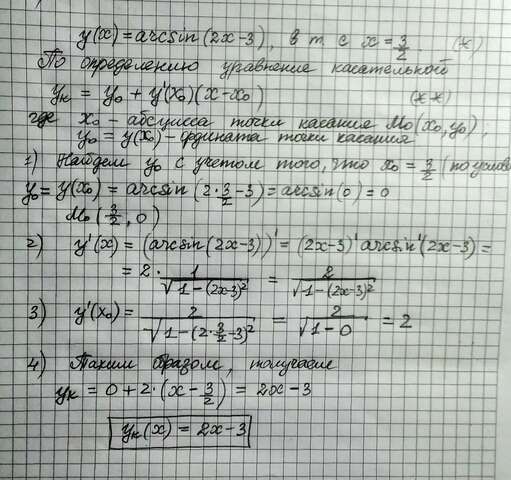 y(x) = arcsin(2x-3), в т. с x = 3/2. (*)
По определению уравнение касательной
yк = y₀ + y'(x₀)(x-x₀) (**)
где x₀ - абсцисса точки касания M₀(x₀, y₀),
y₀ = y(x₀) - ордината точки касания
1) Найдем y₀ с учетом того, что x₀ = 3/2 (по услов
y₀ = y(x₀) = arcsin(2·3/2-3) = arcsin(0) = 0
M₀(3/2, 0)
2) y'(x) = (arcsin(2x-3))' = (2x-3)' arcsin'(2x-3) =
= 2·1/√(1-(2x-3)²) = 2/√(1-(2x-3)²)
3) y'(x₀) = 2/√(1-(2·3/2-3)²) = 2/√(1-0) = 2
4) Таким образом, получаем
yк = 0+2·(x-3/2) = 2x-3
yк(x) = 2x-3